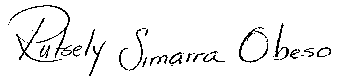 Rutsely Simarra Obeso